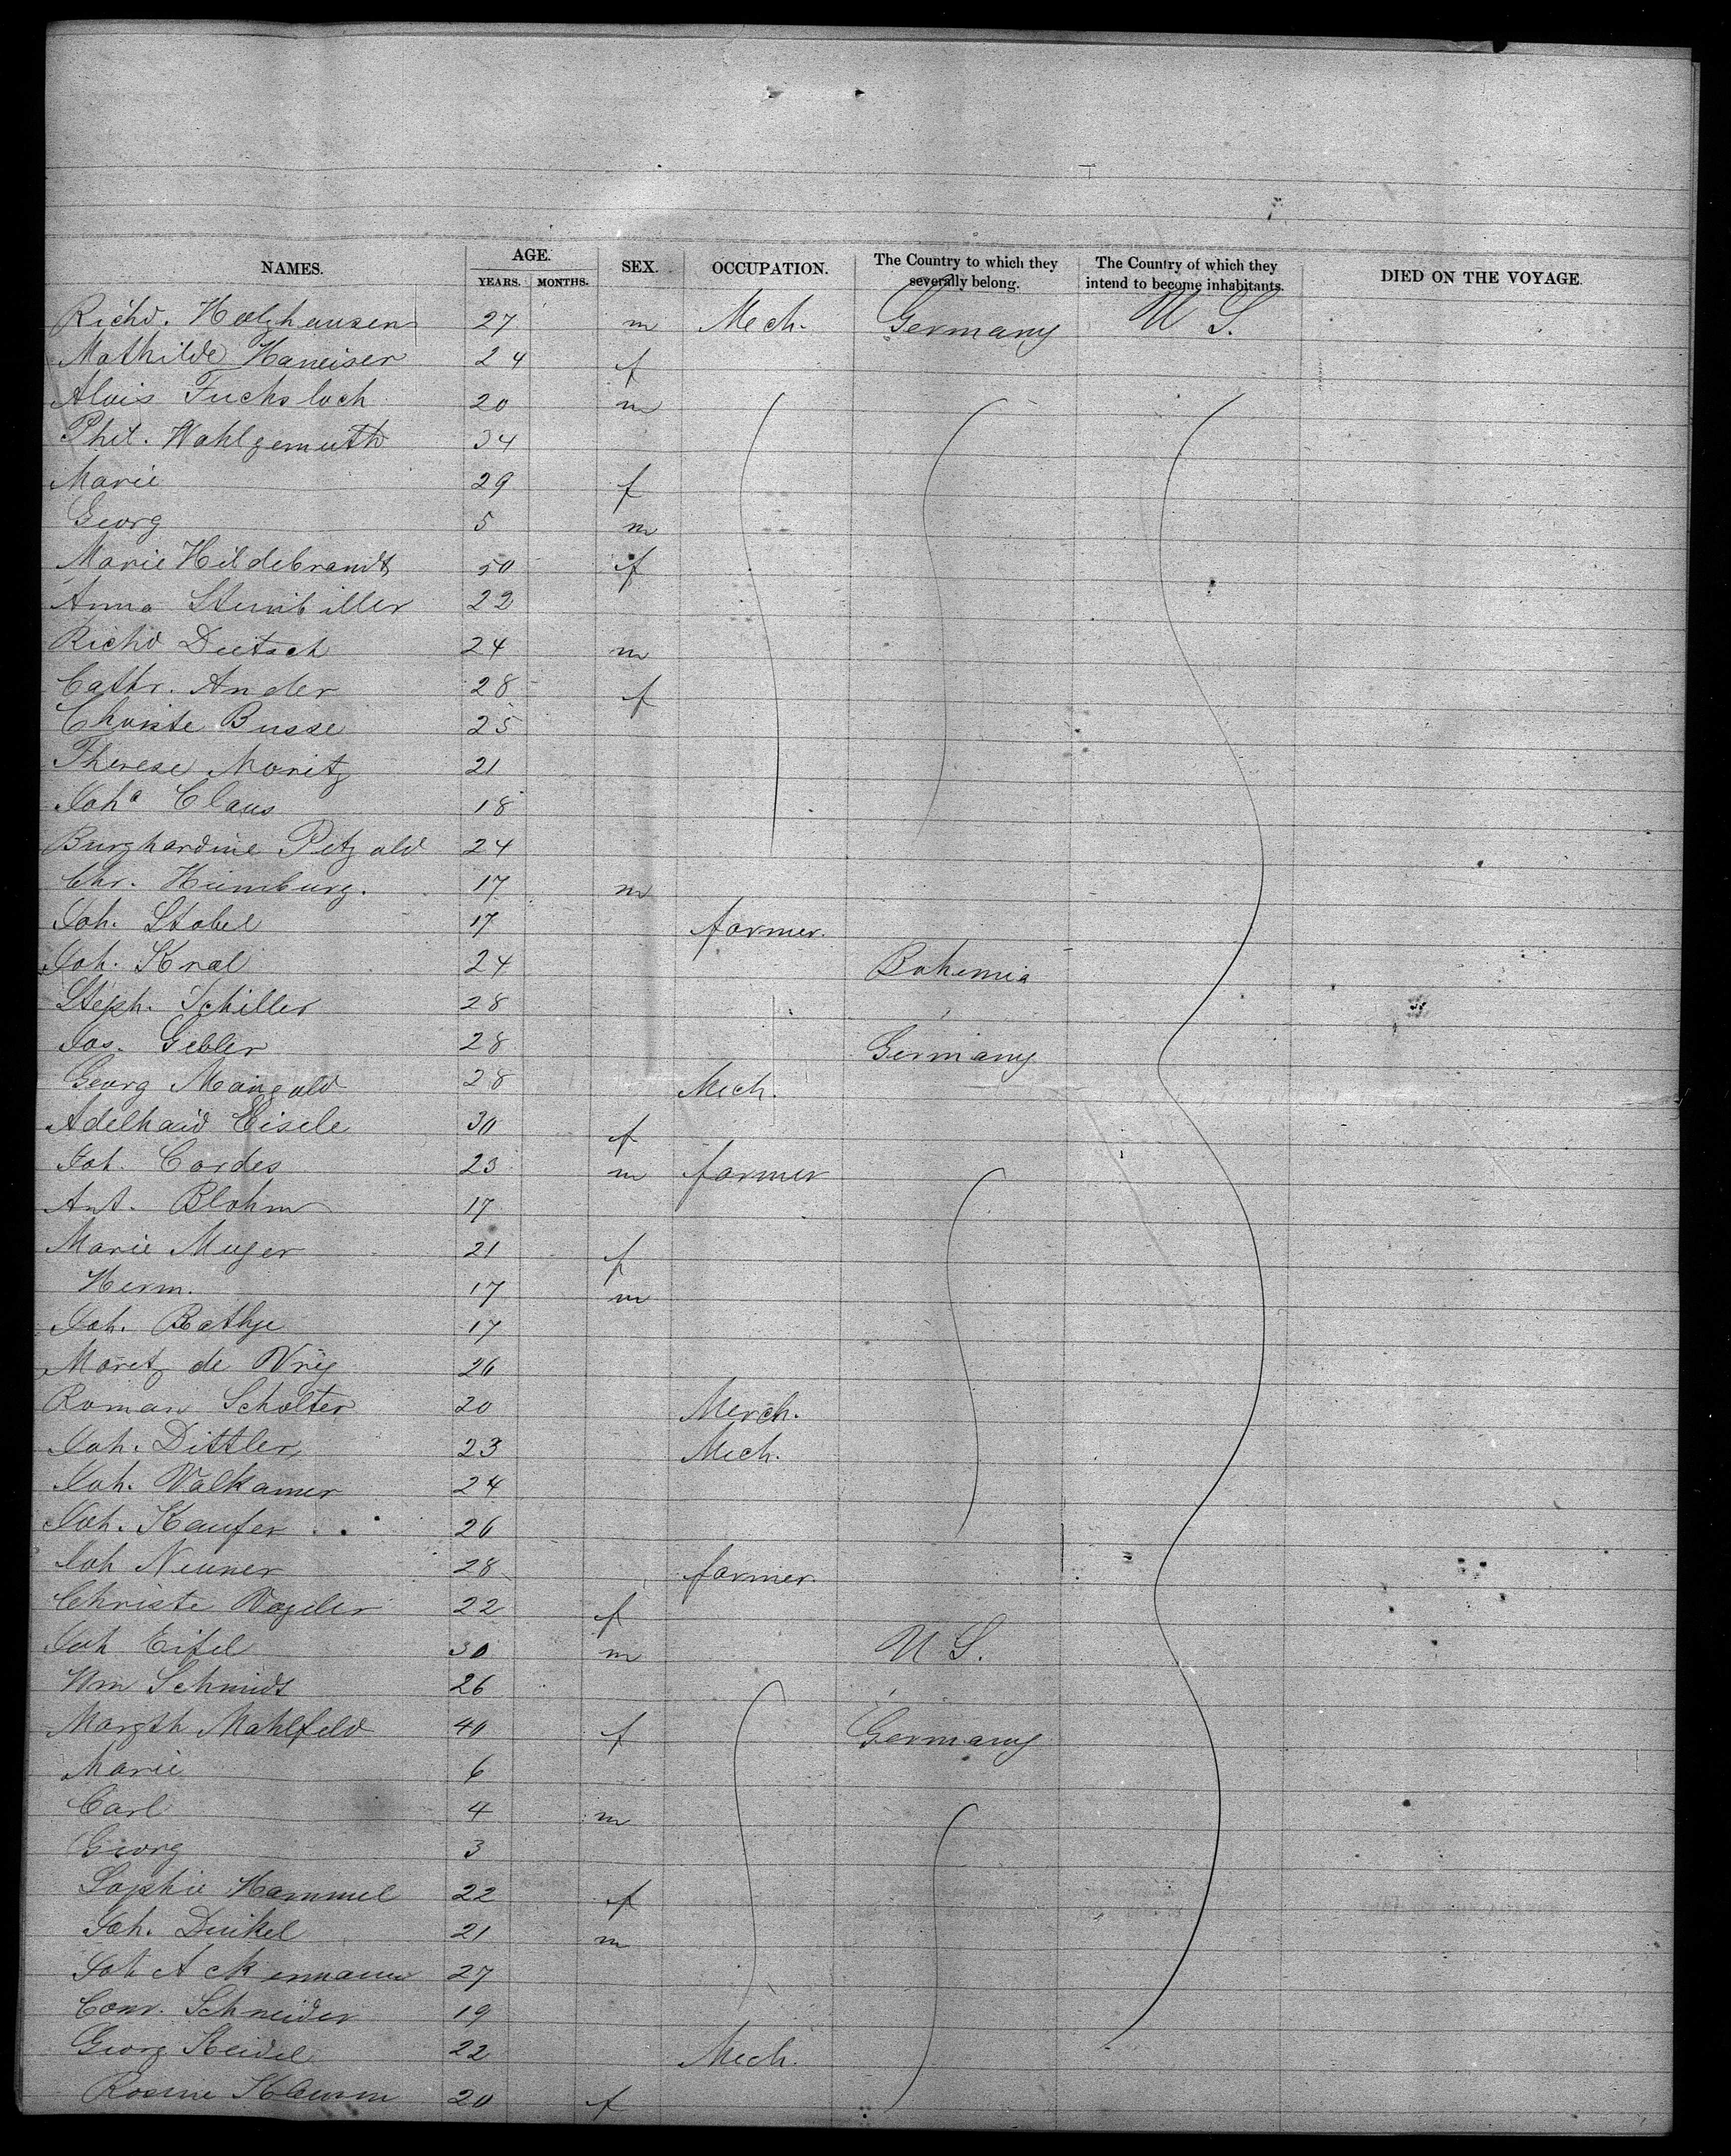 NAMES. AGE. YEARS. MONTHS. SEX. OCCUPATION. The Country to which they severally belong. The Country of which they intend to become inhabitants. DIED ON THE VOYAGE
Richd. Holzhausen 27 m Mech. Germany U S.
Mathilde Haneiser 24 f
Alois Fuchsloch 20 m
Phil. Wohlgemuth 34
Marie 29 f
Georg 5 m
Marie Hildebrandt 50 f
Anna 22
Richd Deutsch 24 m
Cathr. Ander 28 f
Christe Busse 25
Therese Moritz 21
Joha Claus 18
Burghardine Petzold 24
Chr. Heimburg. 17 m
Joh. Stobel 17 farmer.
Joh. Kral 24 Bohemia
Steph. Schiller 28
Jos. Gebler 28 Germany
Georg Mangold 28 Mech.
Adelhaid Eisele 30 f
Joh. Cordes 23 m farmer
Ant. Blohm 17
Marie Meyer 21 f
Herm. 17 m
Joh. Rathje 17
Moretz de Vrij 26
Roman Scholter 20 Merch.
Joh. Dittler 23 Mech.
Joh. Volkamer 24
Joh. Kaufer 26
Joh Neuner 28 farmer.
Christe Vogeler 22 f
Joh Eifel 30 m U S.
Wm Schmidt 26
Margth Mahlfeld 40 f Germany
Marie 6
Carl 4 m
Georg 3
Sophie Hammel 22 f
Joh. Dinkel 21 m
Joh Ackermann 27
Conr. Schneider 19
Georg Heidel 22 Mech.
Rosine 20 f